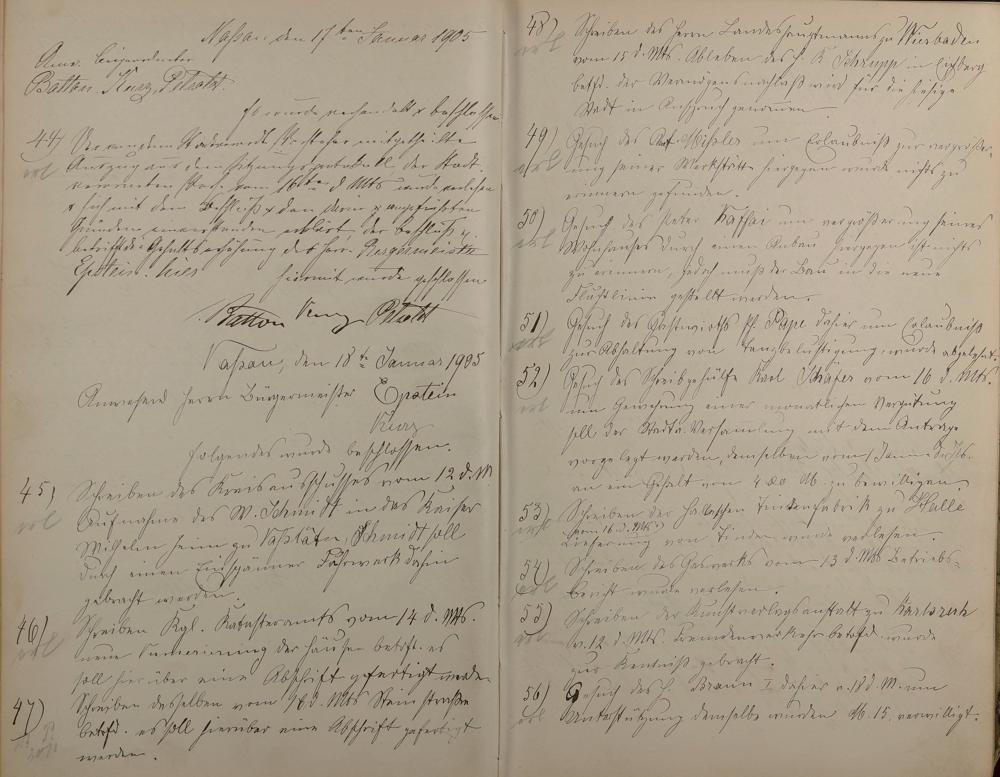 Nassau den 17ten Januar 1905
Anw. Beigeordneter
Batton. Kurz, Petroth.
Es wurde verhandelt & beschlossen
44)
Auszug aus dem Sitzungsprotokoll der Stadt-
verordneten vom 16ten d Mts wurde verlesen
& sich mit dem Beschluß & den darin angeführten
Gründen einverstanden erklärt der Beschluß
betrifft die Gehaltserhöhung des Herrn Bürgermeister
Epstein hier
Hiermit wurde geschlossen
Batton Kurz Petroth
Nassau, den 18te Januar 1905
Anwesend Herrn Bürgermeister Epstein
Kurz
Folgendes wurde beschlossen.
45) Schreiben des Kreisausschusses vom 12 d. M
Aufnahme des W. Schmidt in das Kaiser
Wilhelm heim zu Schmidt soll
durch einen Einspänner Fuhrwerk dahin
gebracht werden.
46) Schreiben Kgl. Katasteramts vom 14 d. Mts.
neue Numerierung der Häuser betrf. es
soll hierüber eine Abschrift gefertigt werden
47) Schreiben desselben vom d. Mts Steinstraße
betrfd. es soll hierüber eine Abschrift gefertigt
werden.
48) Schreiben des Herrn Landeshauptmanns zu Wiesbaden
vom 15 d. Mts. Ableben des H. K Schrupp in
betfd. der Vermögensnachlaß wird für die hiesige
Stadt in Anspruch genommen.
49) Gesuch des um Erlaubniß zur vergrößer-
ung seiner Werkstätte hiergegen wurde nichts zu
erinnern gefunden.
50) Gesuch des Peter Kaffai um vergrößerung seines
Wohnhauses durch einen Anbau hiergegen ist nichts
zu erinnern, jedoch muß der Bau in die neue
Fluchtlinie gestellt werden.
51) Gesuch des Gastwirths Ph. Pape dahier um Erlaubniß
zur Abhaltung von Tanzbelustigung, wurde abgelehnt.
52) Gesuch des Schreibgehülfe Karl Schäfer vom 16 d. Mts.
um Gewährung einer monatlichen Vergütung
soll der Stadtv. Versammlung mit dem Antrage
vorgelegt werden, demselben vom 1 Januar d. Js.
an ein Gehalt von 400 M. zu bewilligen.
53) Schreiben der Hallischen Tintenfabrik zu Halle
vom 16. d. Mts.
Lieferung von Tinten wurde verlesen.
54) Schreiben des Gaswerks vom 13 d. Mts Betriebs-
bericht wurde verlesen.
55) Schreiben der Kunstverlagsanstalt zu Karlsruh
v. 12. d. Mts. Fremdenverkehr betrfd. wurde
zur Kentniß gebracht.
56) Gesuch des H. Braun I. dahier v. 18 d. M. um
Unterstützung demselbe wurden M. 15. verwilligt.